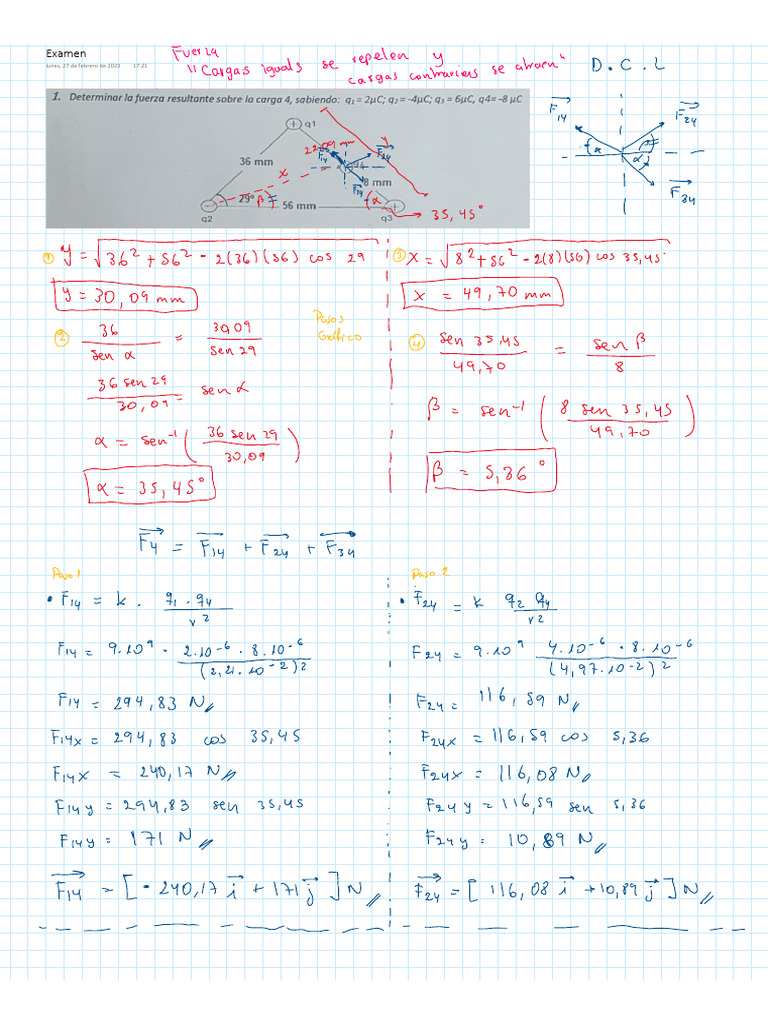 Examen
lunes, 27 de febrero de 2023 17:21
Fuerza
"Cargas iguals se repelen y
cargas contrarias se atraen"
D.C.L
1. Determinar la fuerza resultante sobre la carga 4, sabiendo: q₁ = 2μC; q₂ = -4μC; q₃ = 6μC, q4= -8 μC
q1
22.09 mm
y
F14
F24
q4
36 mm
x
8 mm
F34
29° β
α
56 mm
q2
q3
35,45°
F14
F24
α
α
F34
① y = √36² + 56² - 2(36)(56) cos 29
y = 30,09 mm
② 36 / sen α = 30,09 / sen 29
36 sen 29 / 30,09 = sen α
α = sen⁻¹ (36 sen 29 / 30,09)
α = 35,45°
Pasos
Gráfico
③ x = √8² + 56² - 2(8)(56) cos 35,45
x = 49,70 mm
④ sen 35,45 / 49,70 = sen β / 8
β = sen⁻¹ (8 sen 35,45 / 49,70)
β = 5,36°
F4 = F14 + F24 + F34
Paso 1
• F14 = k . q1 . q4 / r²
F14 = 9.10⁹ . 2.10⁻⁶ . 8.10⁻⁶ / (2,21.10⁻²)²
F14 = 294,83 N
F14x = 294,83 cos 35,45
F14x = 240,17 N
F14y = 294,83 sen 35,45
F14y = 171 N
F14 = [-240,17 i + 171 j] N
Paso 2
• F24 = k q2 q4 / r²
F24 = 9.10⁹ 4.10⁻⁶ . 8.10⁻⁶ / (4,97.10⁻²)²
F24 = 116,59 N
F24x = 116,59 cos 5,36
F24x = 116,08 N
F24y = 116,59 sen 5,36
F24y = 10,89 N
F24 = [116,08 i + 10,89 j] N